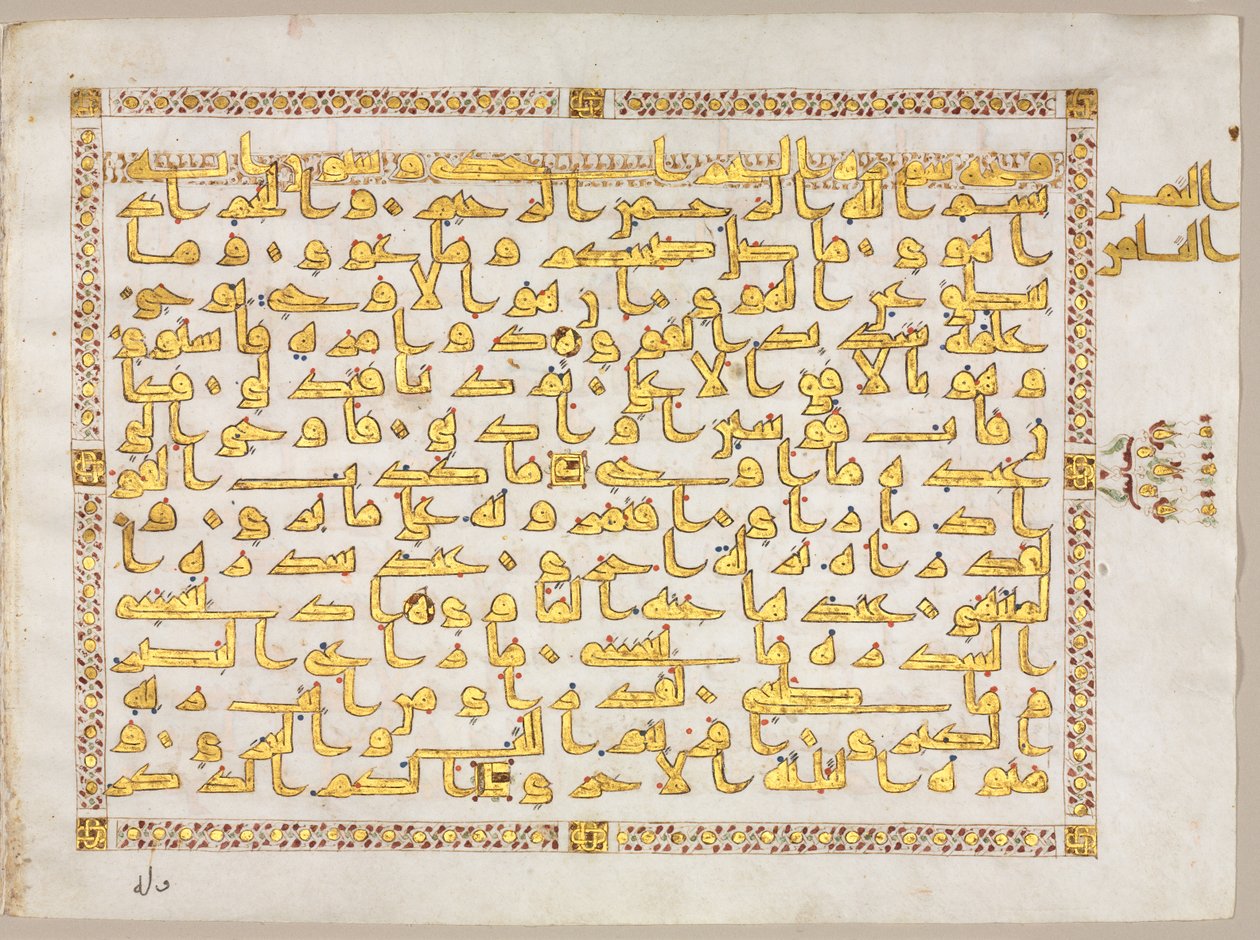 سورة والنجم احدى وستون اية
بسم الله الرحمن الرحيم والنجم اذ
ا هوى ما ضل صحبكم وما غوى وما
ينطق عن الهوى ان هو الا وحي يوحى
علمه شديد القوى ذو مرة فاستوى
وهو بالافق الاعلى ثم دنا فتدلى فكا
ن قاب قوسين او ادنى فاوحى الى
عبده ما اوحى ما كذب الفو
اد ما راى افتمرونه على ما يرى و
لقد راه نزلة اخرى عند سدرة ا
لمنتهى عندها جنة الماوى اذ يغشى
السدرة ما يغشى ما زاغ البصر
وما طغى لقد راى من ايت ربه
الكبرى افريتم اللت والعزى و
منوة الثالثة الاخرى الكم الذكر
وله